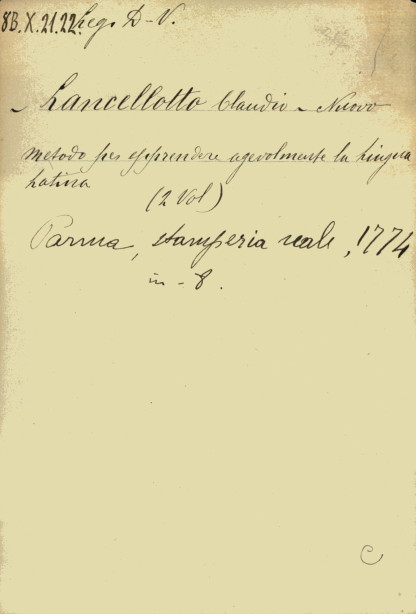 8B.X.21.22. Leg. D-V.
- Lancellotto Claudio - Nuovo
metodo per apprendere agevolmente la lingua
latina
(2 Vol)
Parma, stamperia reale, 1774
in-8.
C